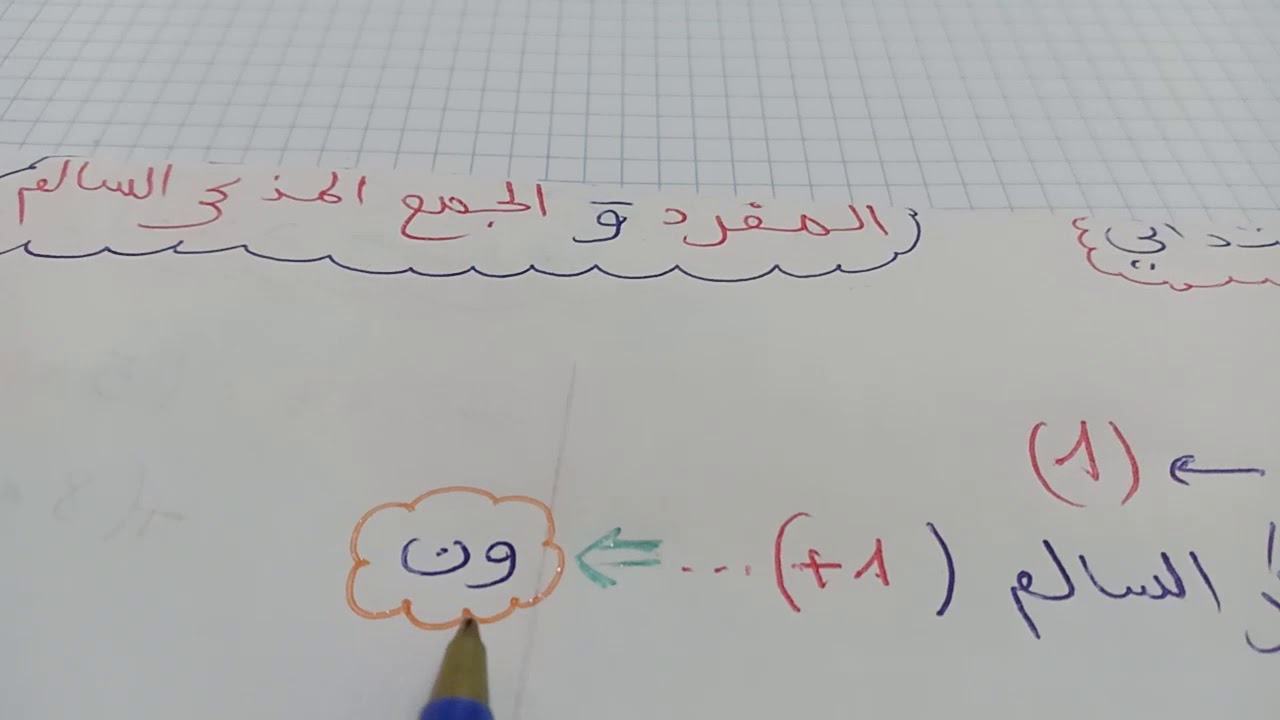 المفرد و الجمع المذكر السالم
(1) ←
السالم (+1) ... ⇐ ون